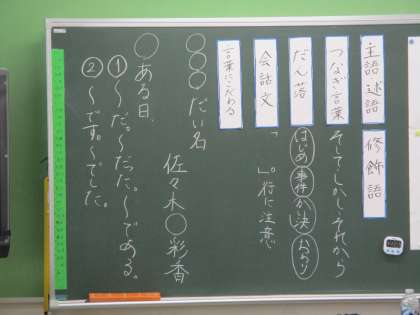 主語 述語 修飾語
つなぎ言葉 そして しかし それから
だん落 はじめ 事件 かい決 おわり
会話文 「 」。行に注意
言葉にこだわる
○○○ だい名
佐々木○彩香
○ある日
① 〜だ。〜だった。〜である。
② 〜です。〜でした。